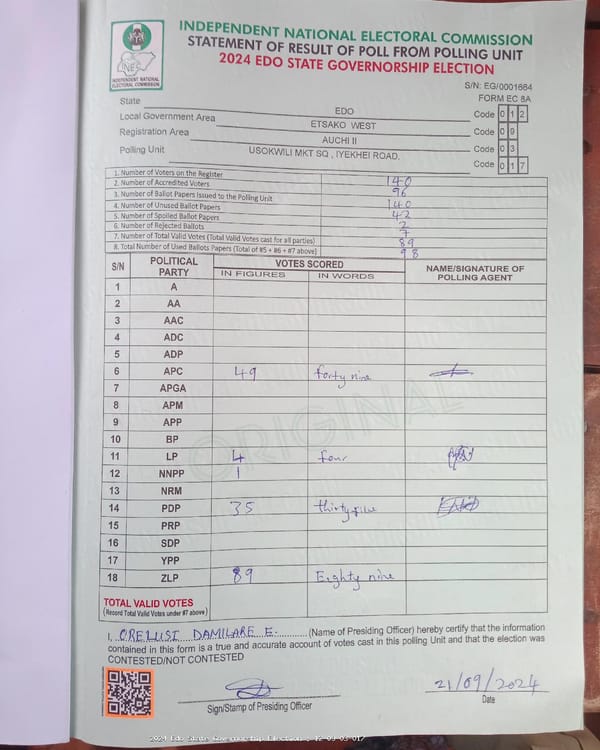 INDEPENDENT NATIONAL ELECTORAL COMMISSION
STATEMENT OF RESULT OF POLL FROM POLLING UNIT
2024 EDO STATE GOVERNORSHIP ELECTION
INEC
INDEPENDENT NATIONAL
ELECTORAL COMMISSION
S/N: EG/0001664
FORM EC 8A
State EDO Code 0 1 2
Local Government Area ETSAKO WEST Code 0 9
Registration Area AUCHI II Code 0 3
Polling Unit USOKWILI MKT SQ , IYEKHEI ROAD. Code 0 1 7
1. Number of Voters on the Register 140
2. Number of Accredited Voters 96
3. Number of Ballot Papers Issued to the Polling Unit 140
4. Number of Unused Ballot Papers 42
5. Number of Spoiled Ballot Papers 2
6. Number of Rejected Ballots 7
7. Number of Total Valid Votes (Total Valid Votes cast for all parties) 89
8. Total Number of Used Ballots Papers (Total of #5 + #6 + #7 above) 98
S/N POLITICAL PARTY VOTES SCORED NAME/SIGNATURE OF POLLING AGENT
IN FIGURES IN WORDS
1 A
2 AA
3 AAC
4 ADC
5 ADP
6 APC 49 forty nine
7 APGA
8 APM
9 APP
10 BP
11 LP 4 four
12 NNPP 1
13 NRM
14 PDP 35 thirty five
15 PRP
16 SDP
17 YPP
18 ZLP 89 Eighty nine
ORIGINAL
TOTAL VALID VOTES
(Record Total Valid Votes under #7 above)
I, ORELUSI DAMILARE E. (Name of Presiding Officer) hereby certify that the information
contained in this form is a true and accurate account of votes cast in this polling Unit and that the election was
CONTESTED/NOT CONTESTED
21/09/2024
Sign/Stamp of Presiding Officer Date
2024 Edo State Governorship Election : 12-09-03-017